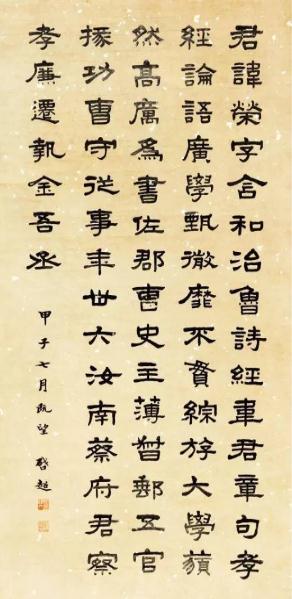 君諱榮字含和治魯詩經韋君章句孝
經論語廣學甄微靡不貫綜斿大學藐
然高厲為書佐郡曹史主薄督郵五官
掾功曹守從事年卅六汝南蔡府君察
孝廉遷執金吾丞
甲子七月既望 啓超